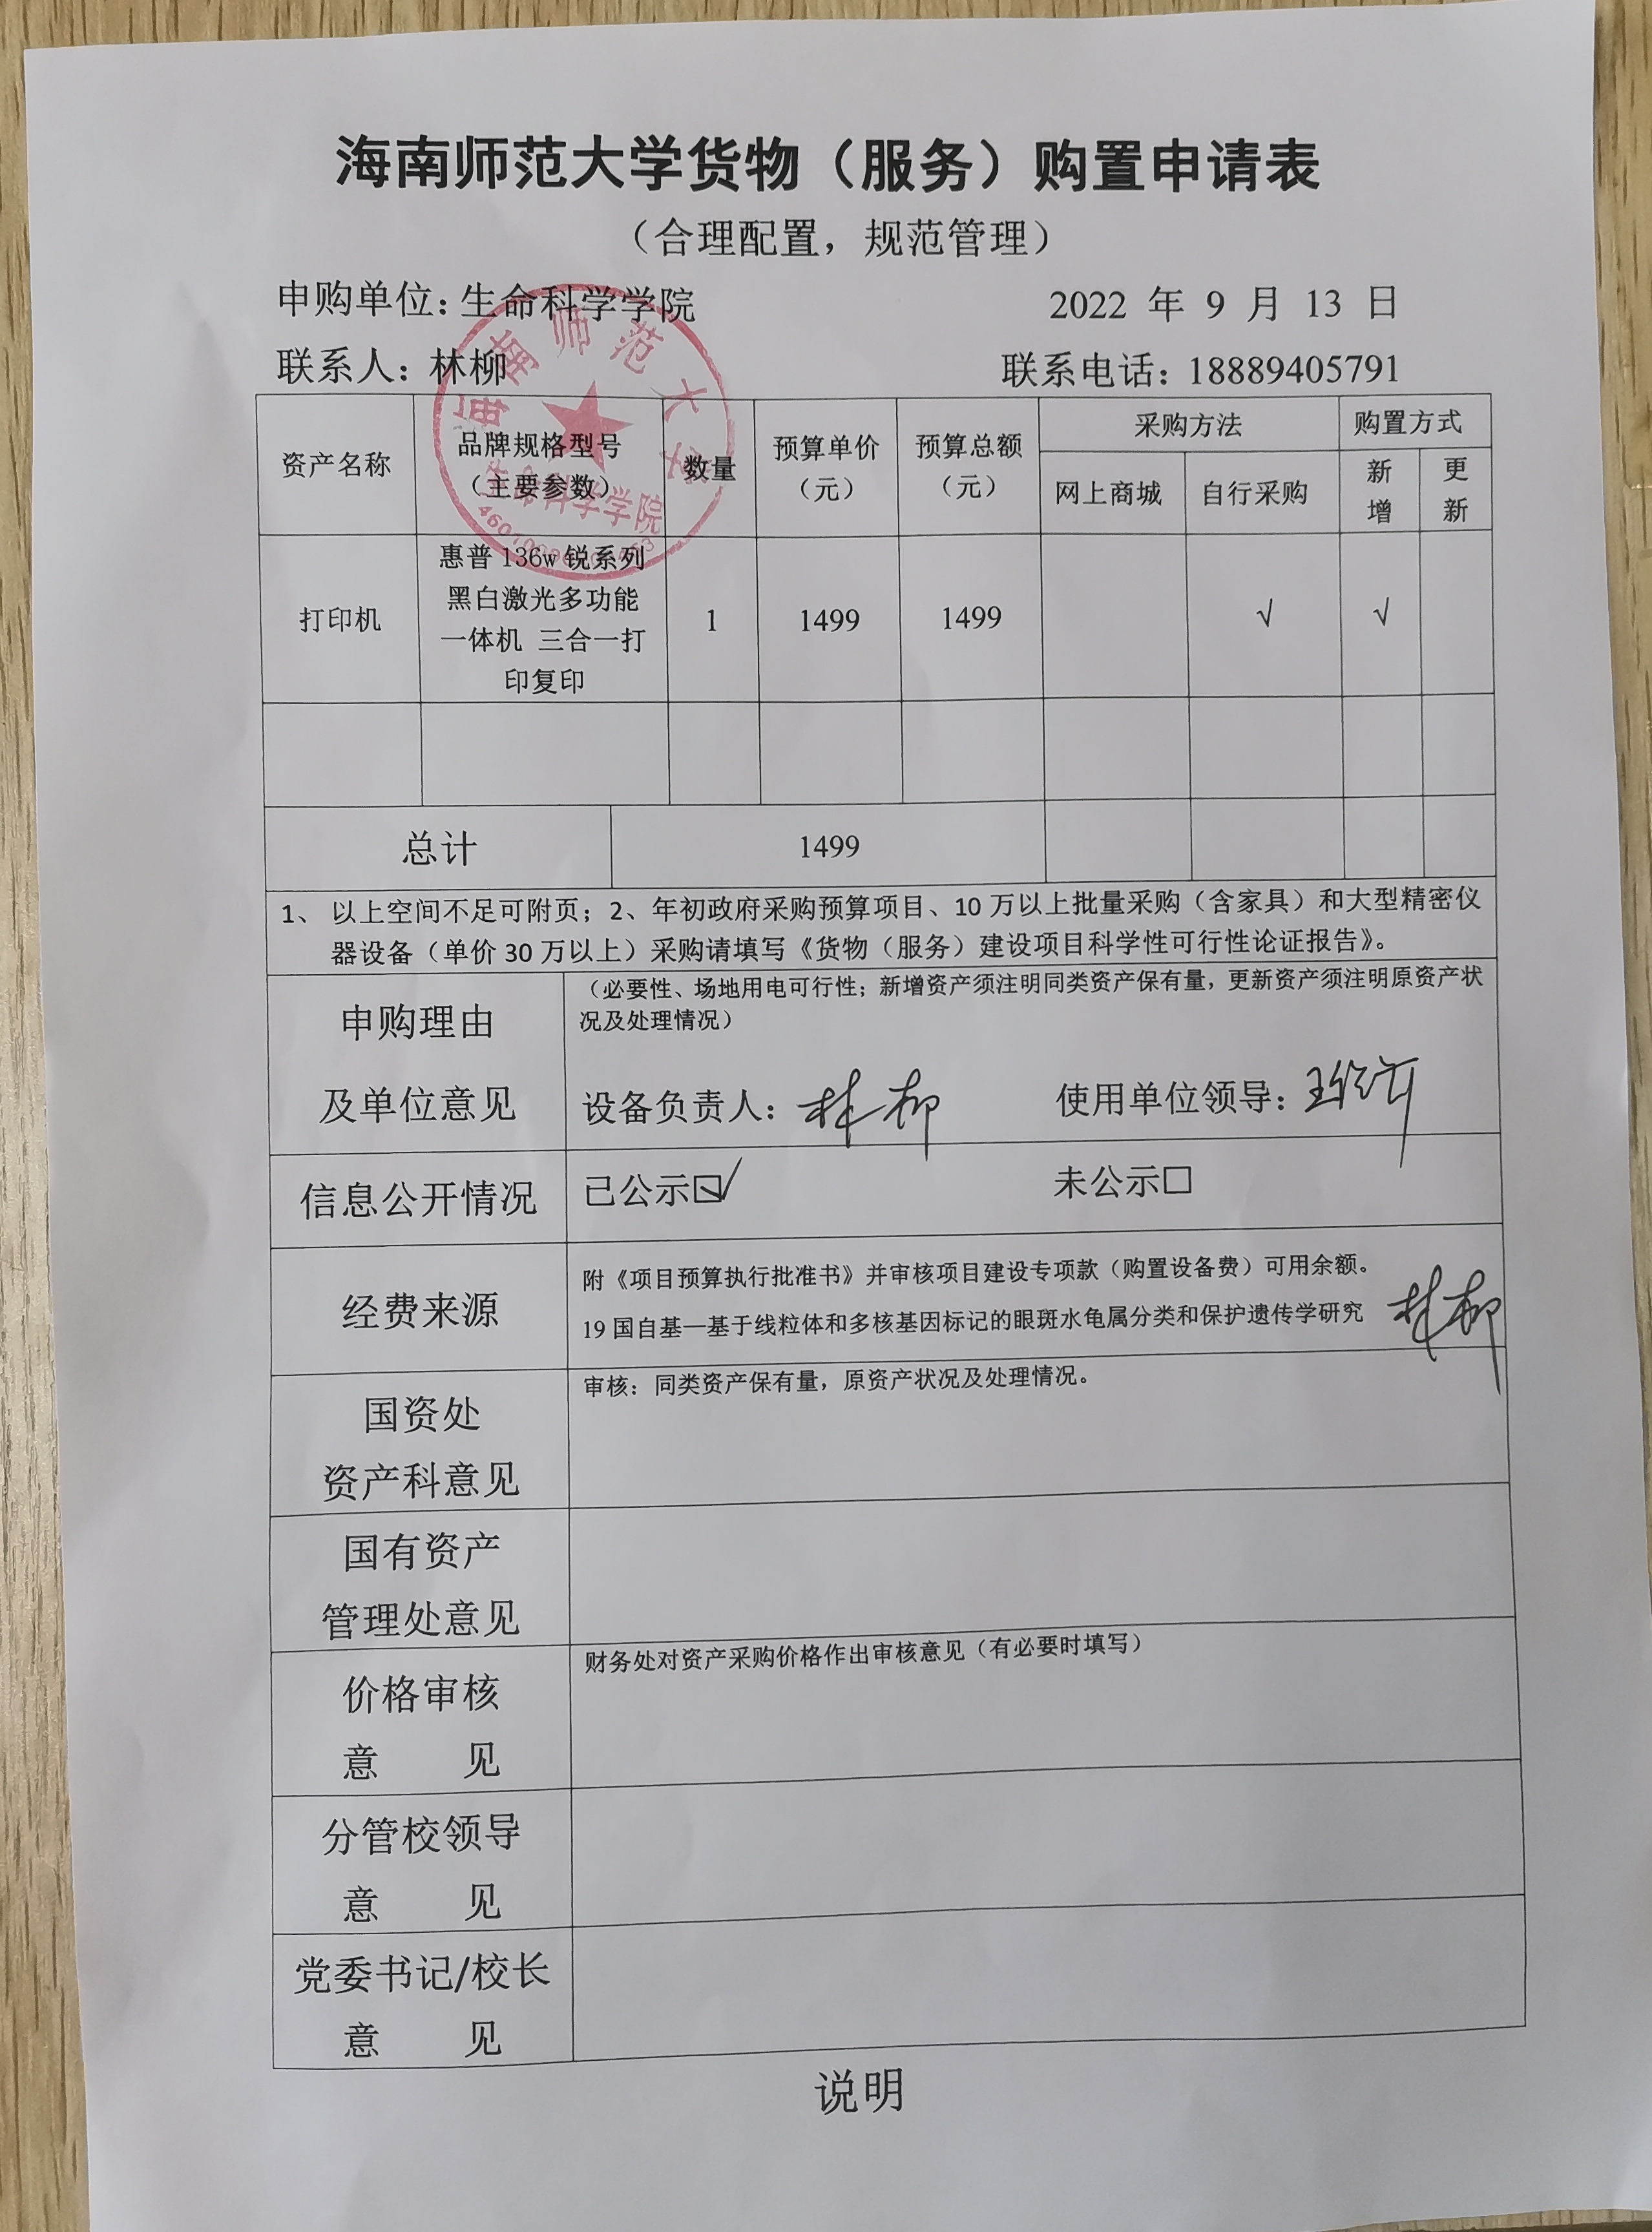 海南师范大学货物（服务）购置申请表
（合理配置，规范管理）
申购单位：生命科学学院 2022 年 9 月 13 日
联系人：林柳 联系电话：18889405791
海南师范大学
生命科学学院
资产名称 品牌规格型号（主要参数） 数量 预算单价（元） 预算总额（元） 采购方法 购置方式
网上商城 自行采购 新增 更新
打印机 惠普 136w 锐系列 1 1499 1499 √ √
黑白激光多功能
一体机 三合一打
印复印
总计 1499
1、 以上空间不足可附页；2、年初政府采购预算项目、10 万以上批量采购（含家具）和大型精密仪
器设备（单价 30 万以上）采购请填写《货物（服务）建设项目科学性可行性论证报告》。
申购理由
及单位意见
（必要性、场地用电可行性；新增资产须注明同类资产保有量，更新资产须注明原资产状
况及处理情况）
设备负责人：林柳 使用单位领导：
信息公开情况 已公示☑ 未公示□
经费来源
附《项目预算执行批准书》并审核项目建设专项款（购置设备费）可用余额。
19 国自基—基于线粒体和多核基因标记的眼斑水龟属分类和保护遗传学研究 林柳
国资处
资产科意见
审核：同类资产保有量，原资产状况及处理情况。
国有资产
管理处意见
价格审核
意 见
财务处对资产采购价格作出审核意见（有必要时填写）
分管校领导
意 见
党委书记/校长
意 见
说明